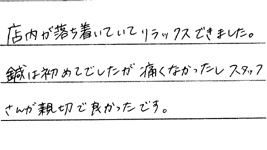 店内が落ち着いていてリラックスできました。
鍼は初めてでしたが痛くなかったしスタッフ
さんが親切で良かったです。